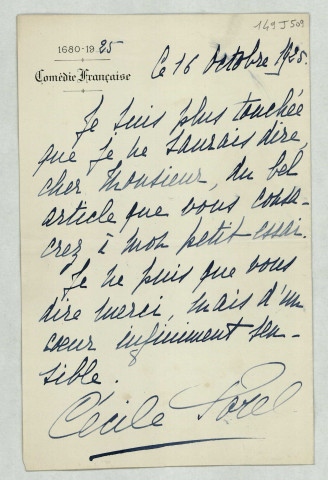 149 J 509
1680-1925
Comédie Française
Ce 16 Octobre 1925.
Je suis plus touchée
que je ne saurais dire,
cher Monsieur, du bel
article que vous consa-
crez à mon petit essai.
Je ne puis que vous
dire merci, mais d'un
cœur infiniment sen-
sible.
Cécile Sorel